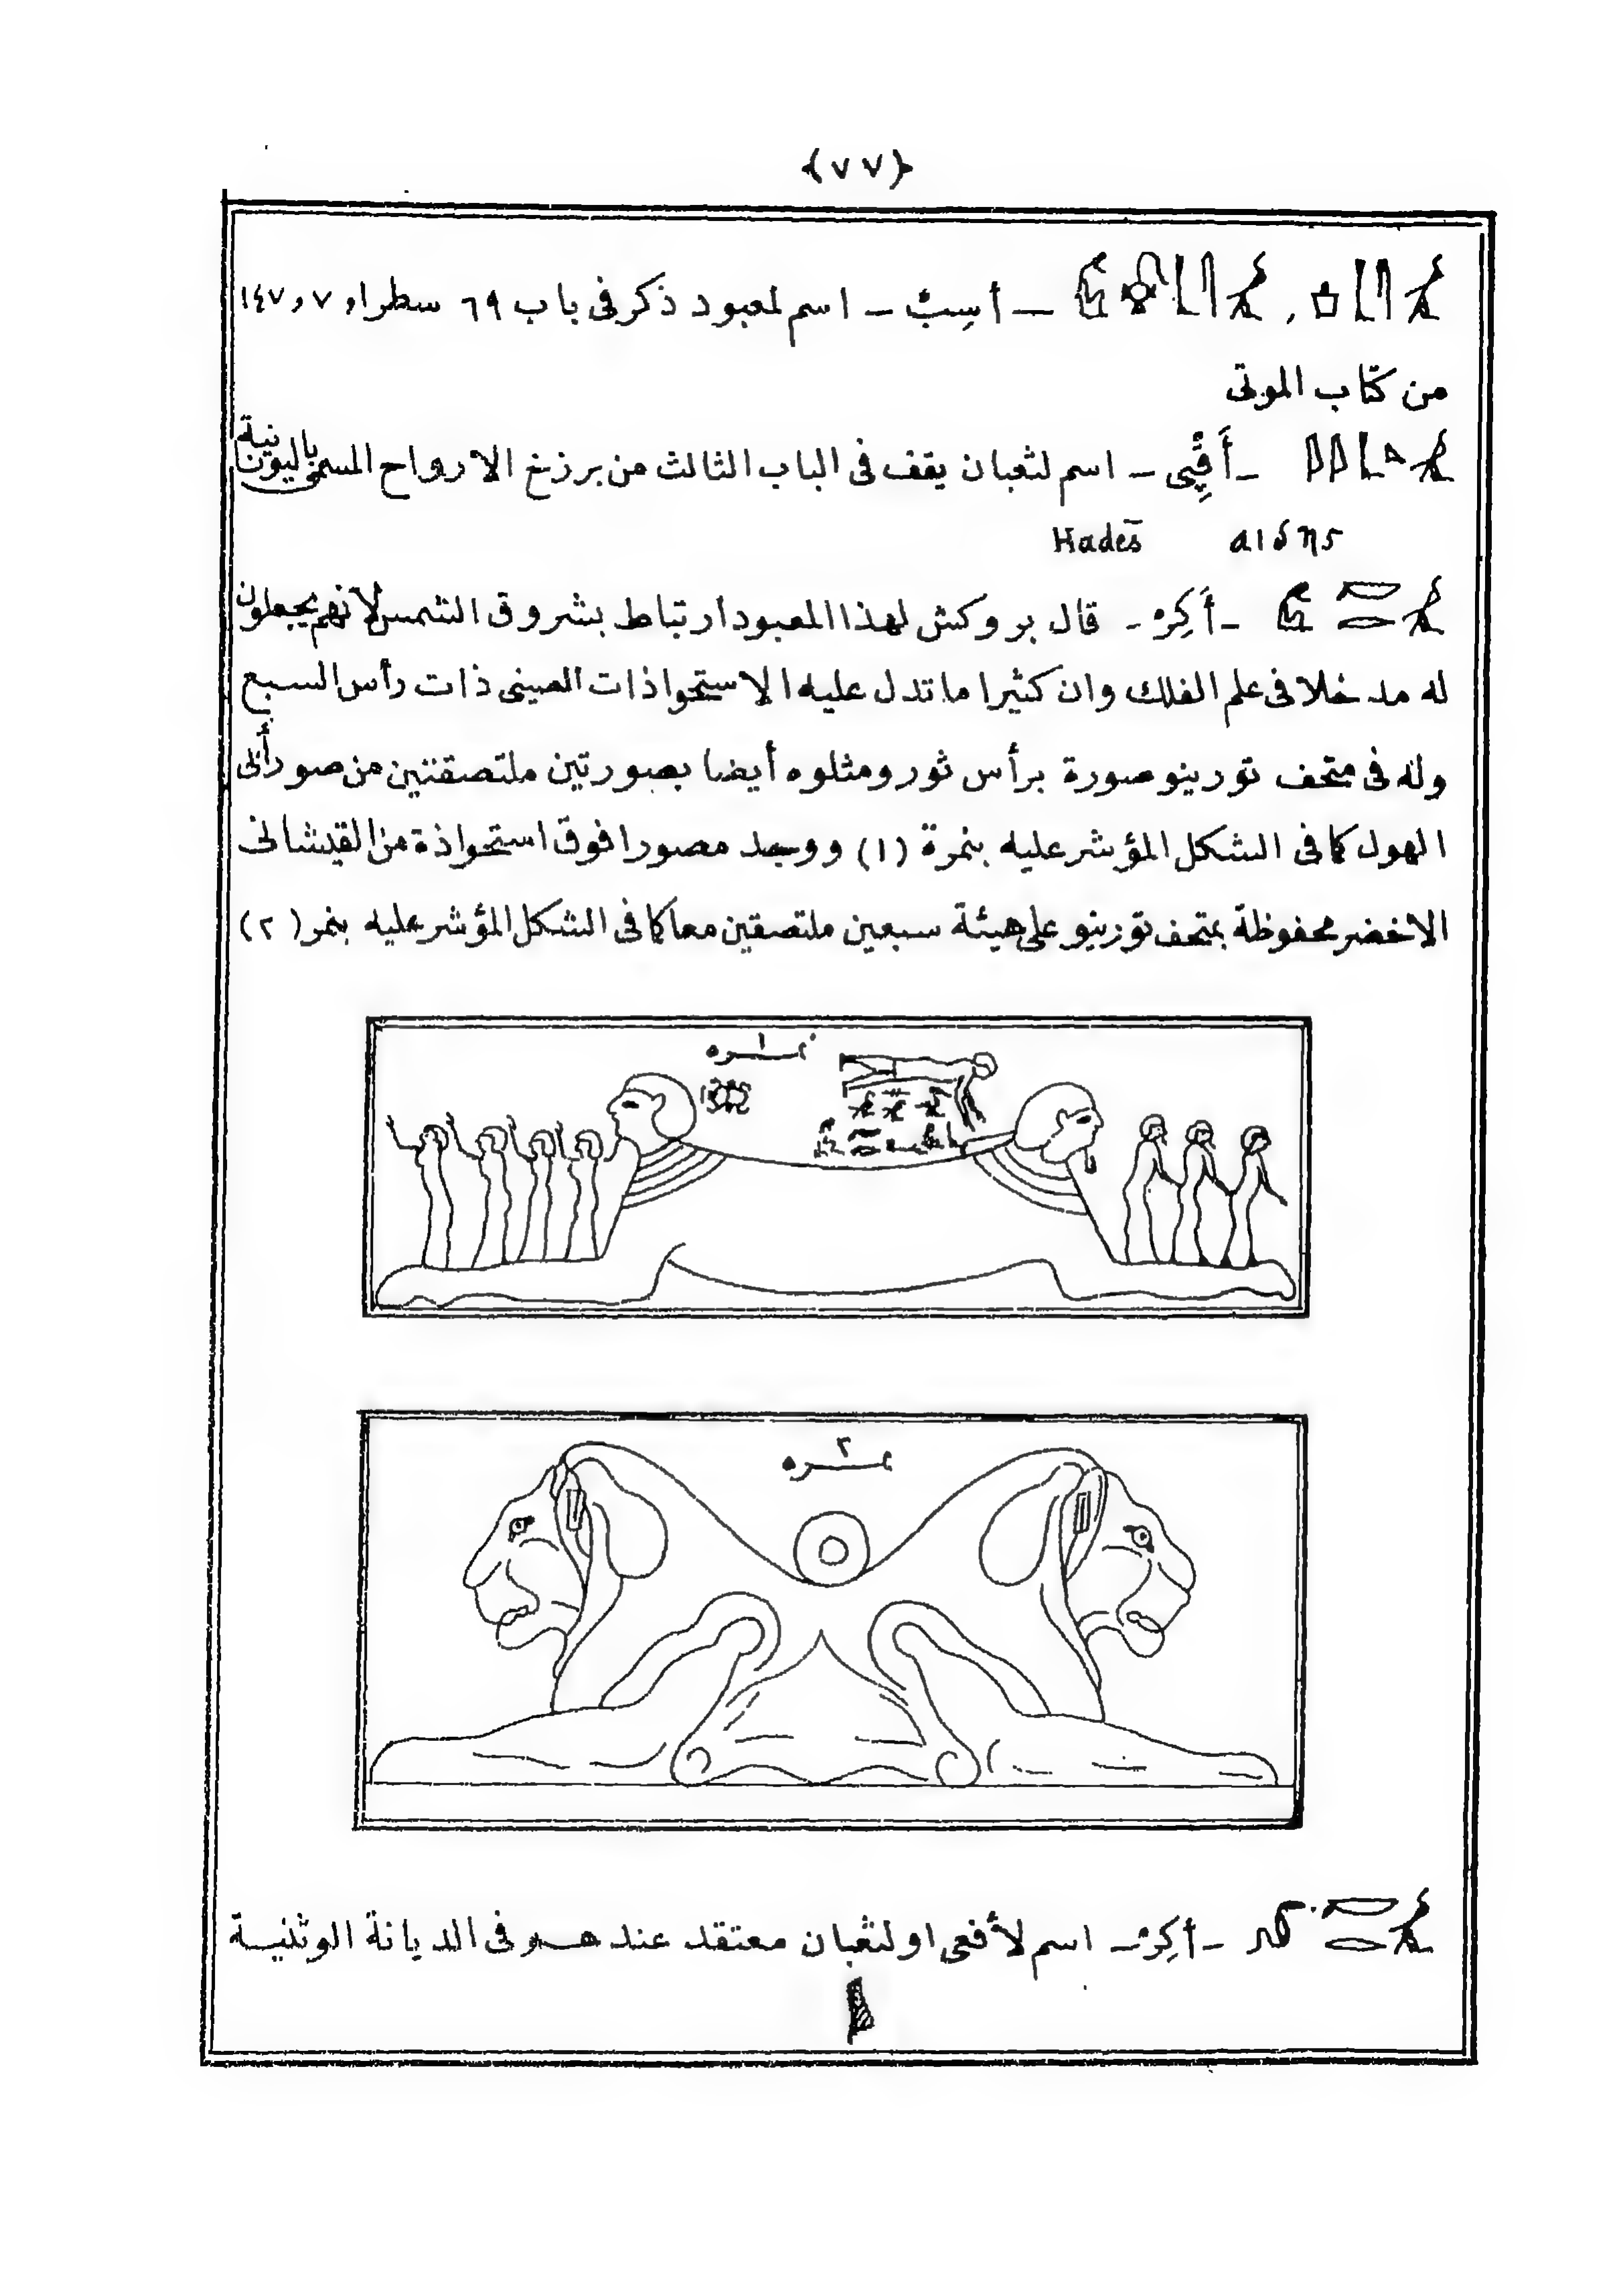 {٧٧}
— أسِبْ — اسم لمعبود ذكر فى باب ٦٩ سطر ١ و ٧ و ١٤٧
من كتاب الموتى
— أَقْپِى — اسم لثعبان يقف فى الباب الثالث من برزخ الارواح المسمى باليونانية
Hadēs αιδης
— أَكِرْ — قال بروكش لهذا المعبود ارتباط بشروق الشمس لانهم يجعلون
له مدخلا فى علم الفلك وان كثيرا ما تدل عليه الاستحواذات الصينى ذات رأس السبع
وله فى متحف تورينو صورة برأس ثور ومثلوه أيضا بصورتين ملتصقتين من صور أبى
الهول كما فى الشكل المؤشر عليه بنمرة (١) ووجد مصورا فوق استحواذة من القيشانى
الاخضر محفوظة بمتحف تورينو على هيئة سبعين ملتصقين معا كما فى الشكل المؤشر عليه بنمر (٢)
نمره ١
نمره ٢
— أكِرْ — اسم لأفعى او لثعبان معتقد عندهم فى الديانة الوثنية